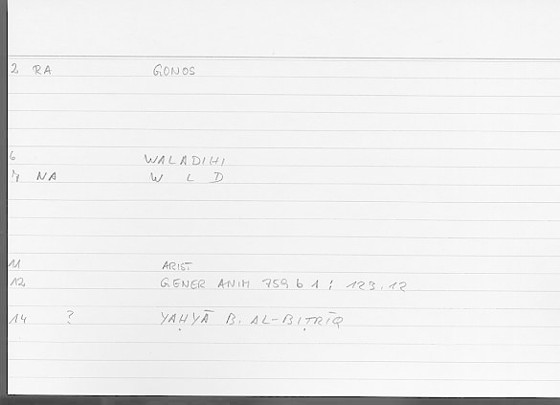 2 RA GONOS
6 WALADIHI
7 NA W L D
11 ARIST.
12 GENER ANIM 759 b 1 ; 123.12
14 ? YAḤYĀ B. AL-BIṬRĪQ